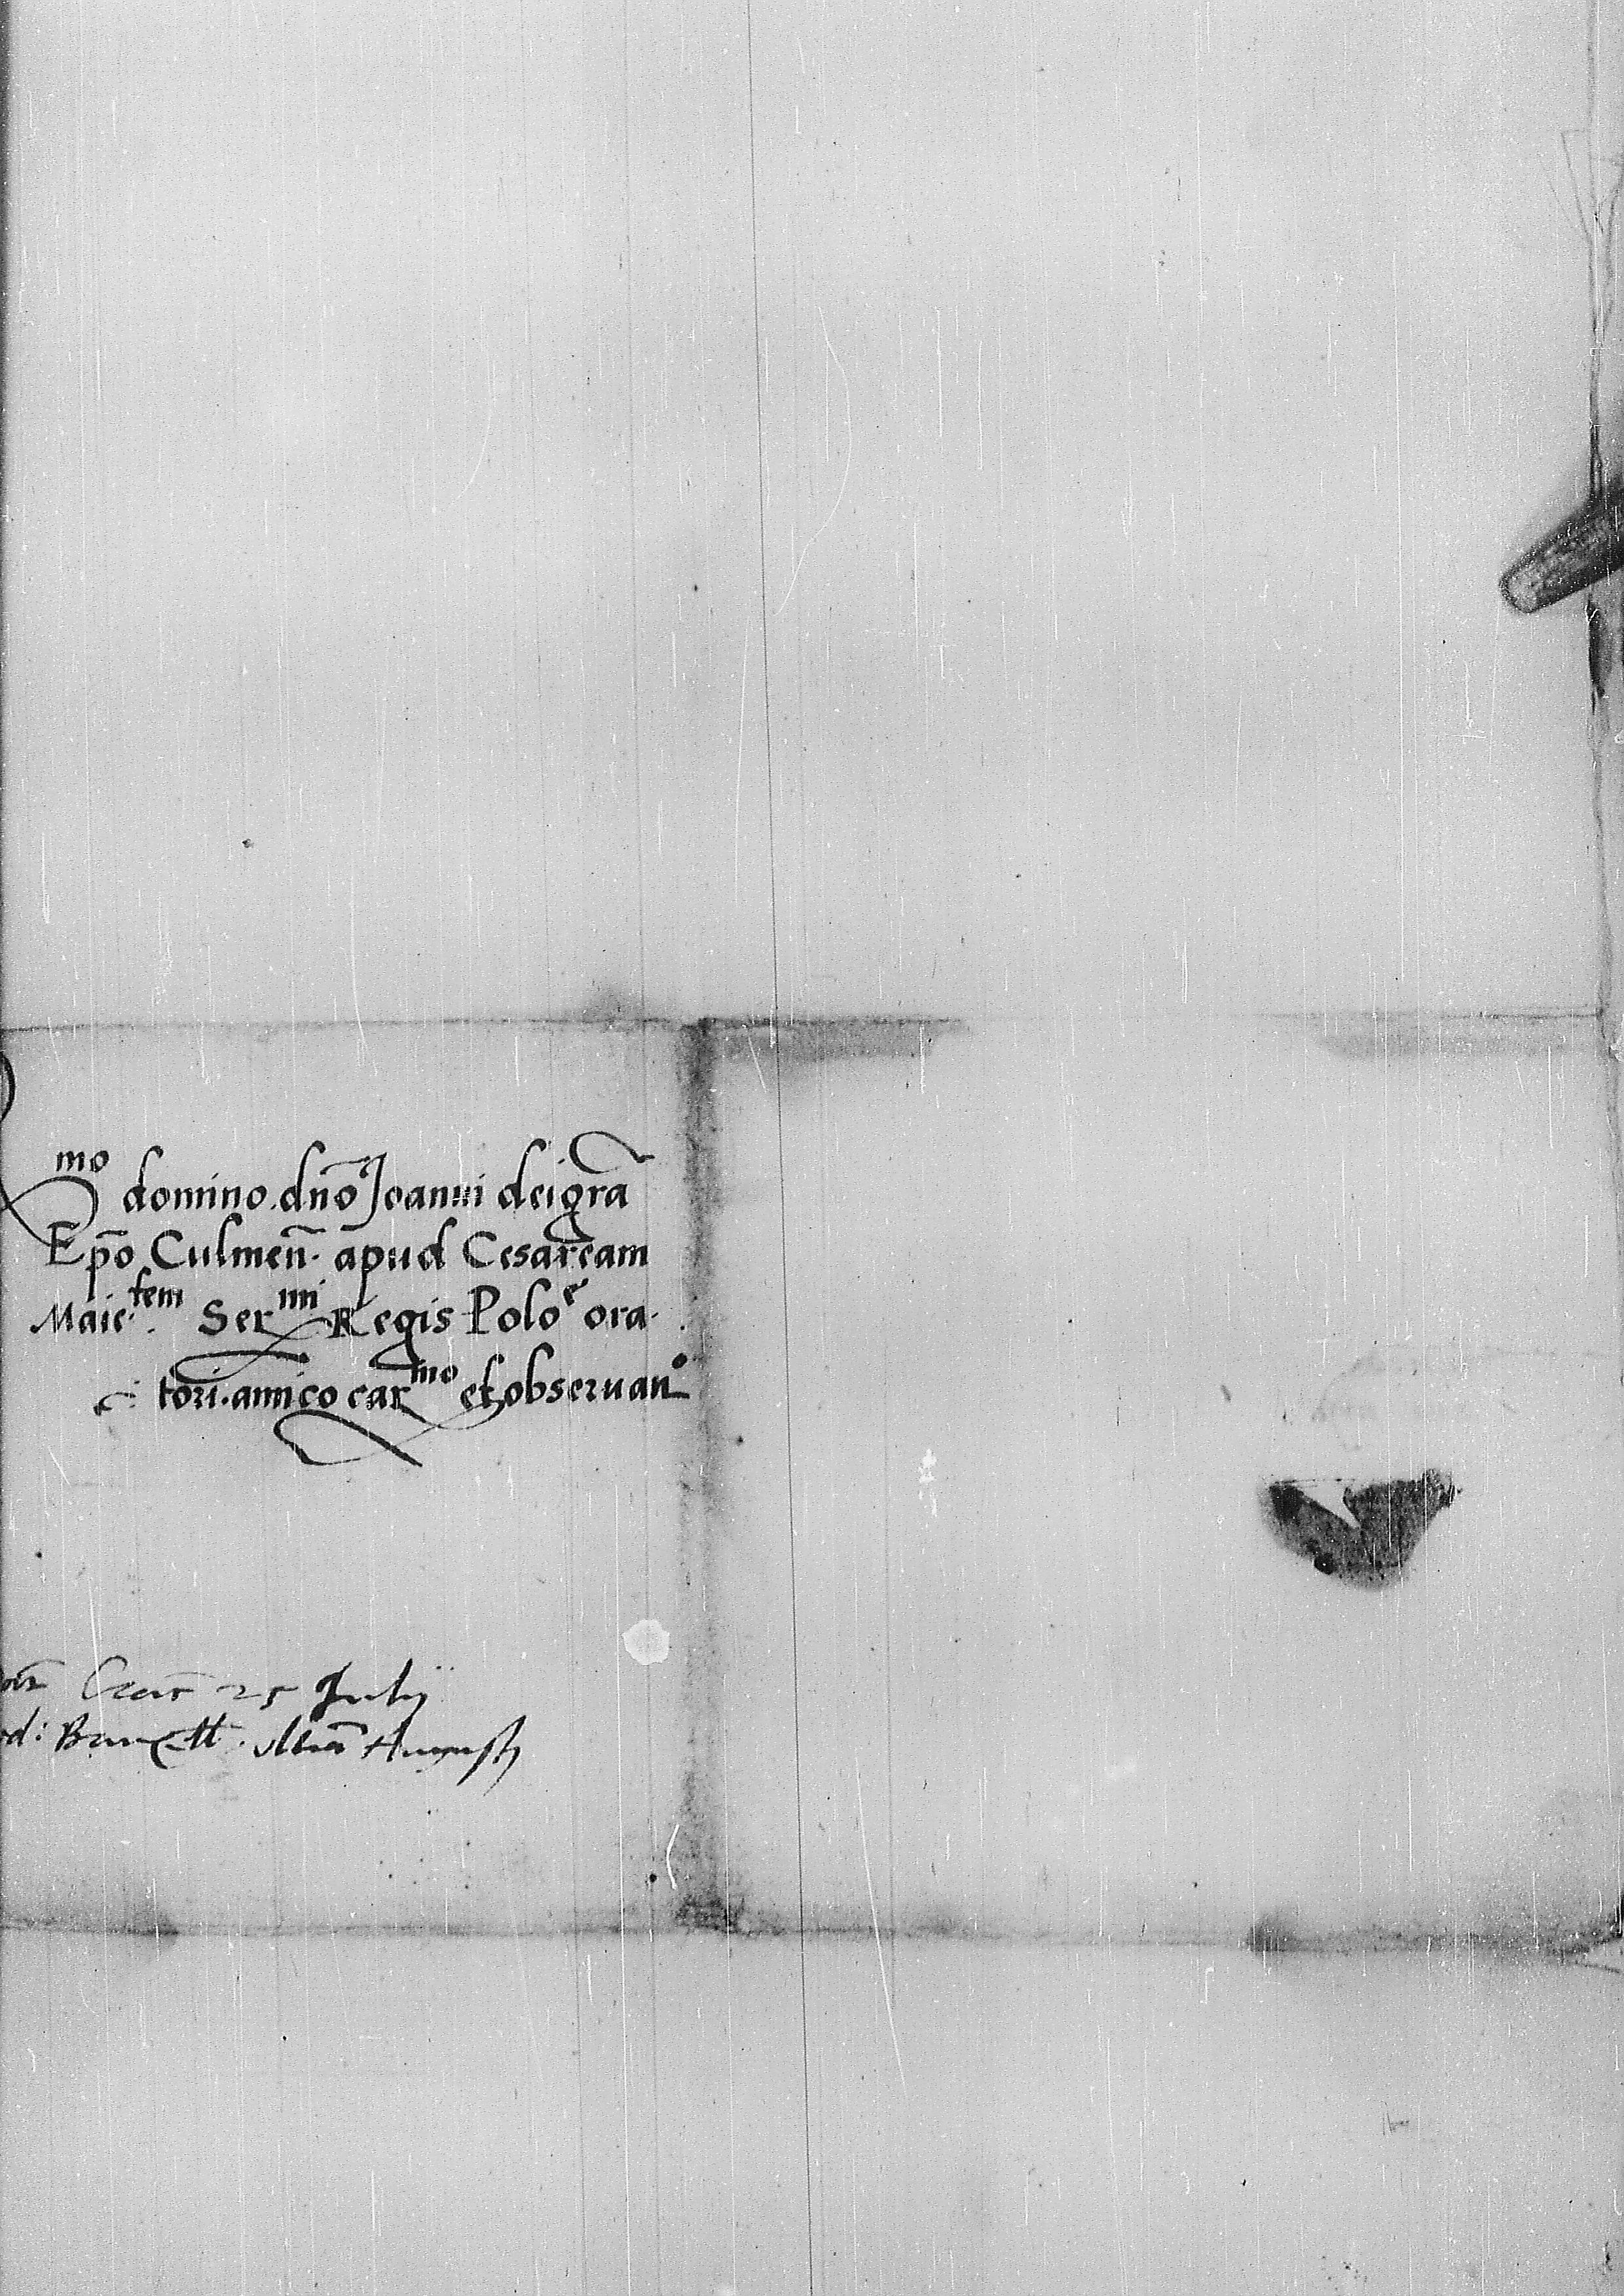 mo domino. dño Joanni dei gr̃a
Ep̃o Culmeñ. apud Cesaream
Maie.tem Ser.mi Regis Polo.e ora.
tori. amico car.mo et observan.o
25 Julij
Bruxell. Augusti